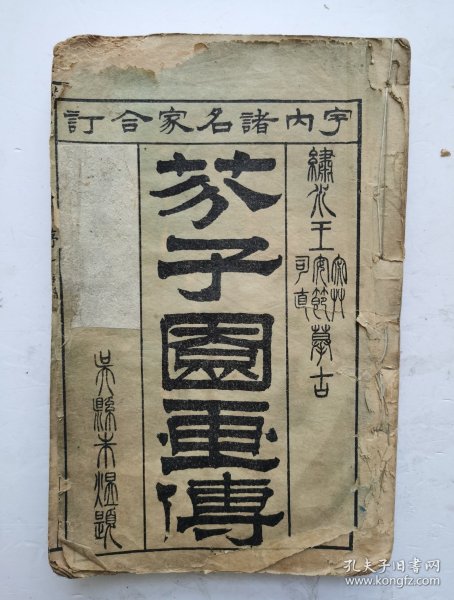 宇内諸名家合訂
繡水王宓艸安節司直摹古
芥子園畫傳
吳縣朱題
孔夫子旧书网
www.kongfz.com